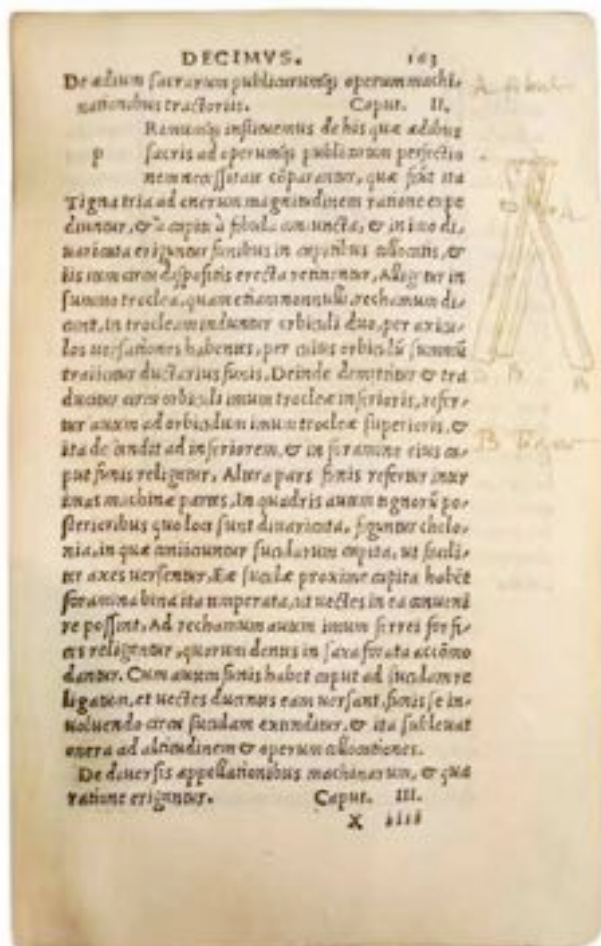 DECIMVS. 163
De ædium sacrarum publicarumq; operum machi-
nationibus tractoriis. Caput. II.
Rimumq; instituemus de his quæ ædibus
p sacris ad operumq; publicorum perfectio
nem necessitate cōparantur, quæ fiūt ita
Tigna tria ad onerum magnitudinem ratione expe
diuntur, & a capite a fibula coniuncta, & in imo di-
uaricata eriguntur funibus in capitibus collocatis, &
iis circa dispositis erecta retinentur, Alligatur in
summo troclea, quam etiam nonnulli, rechamum di-
cunt. In trocleam induntur orbiculi duo, per axicu-
los uersationes habentes, per cuius orbiculū summū
traiicitur ductarius funis, Deinde demittitur & tra
ducitur circa orbiculi imum trocleæ inferioris, refer-
tur autem ad orbiculum imum trocleæ superioris, &
ita descendit ad inferiorem, & in foramine eius ca-
put funis religatur, Altera pars funis refertur inter
imas machinæ partes, In quadris autem tignorū po-
sterioribus quo loci sunt diuaricata, figuntur chelo-
nia, in quæ coniiciuntur sucularum capita, ut facili-
ter axes uersentur, Eæ suculæ proxime capita habēt
foramina bina ita temperata, ut uectes in ea conueni
re possint, Ad rechamum autem imum ferrei forfi-
ces religantur, quorum dentes in saxa forata accōmo
dantur. Cum autem funis habet caput ad suculam re
ligatum, et uectes ducentes eam uersant, funis se in-
uoluendo circa suculam extenditur, & ita subleuat
onera ad altitudinem & operum collocationes.
De diuersis appellationibus machinarum, & qua
ratione erigantur. Caput. III.
X iiii
A. fibula
A
B B
B tigna